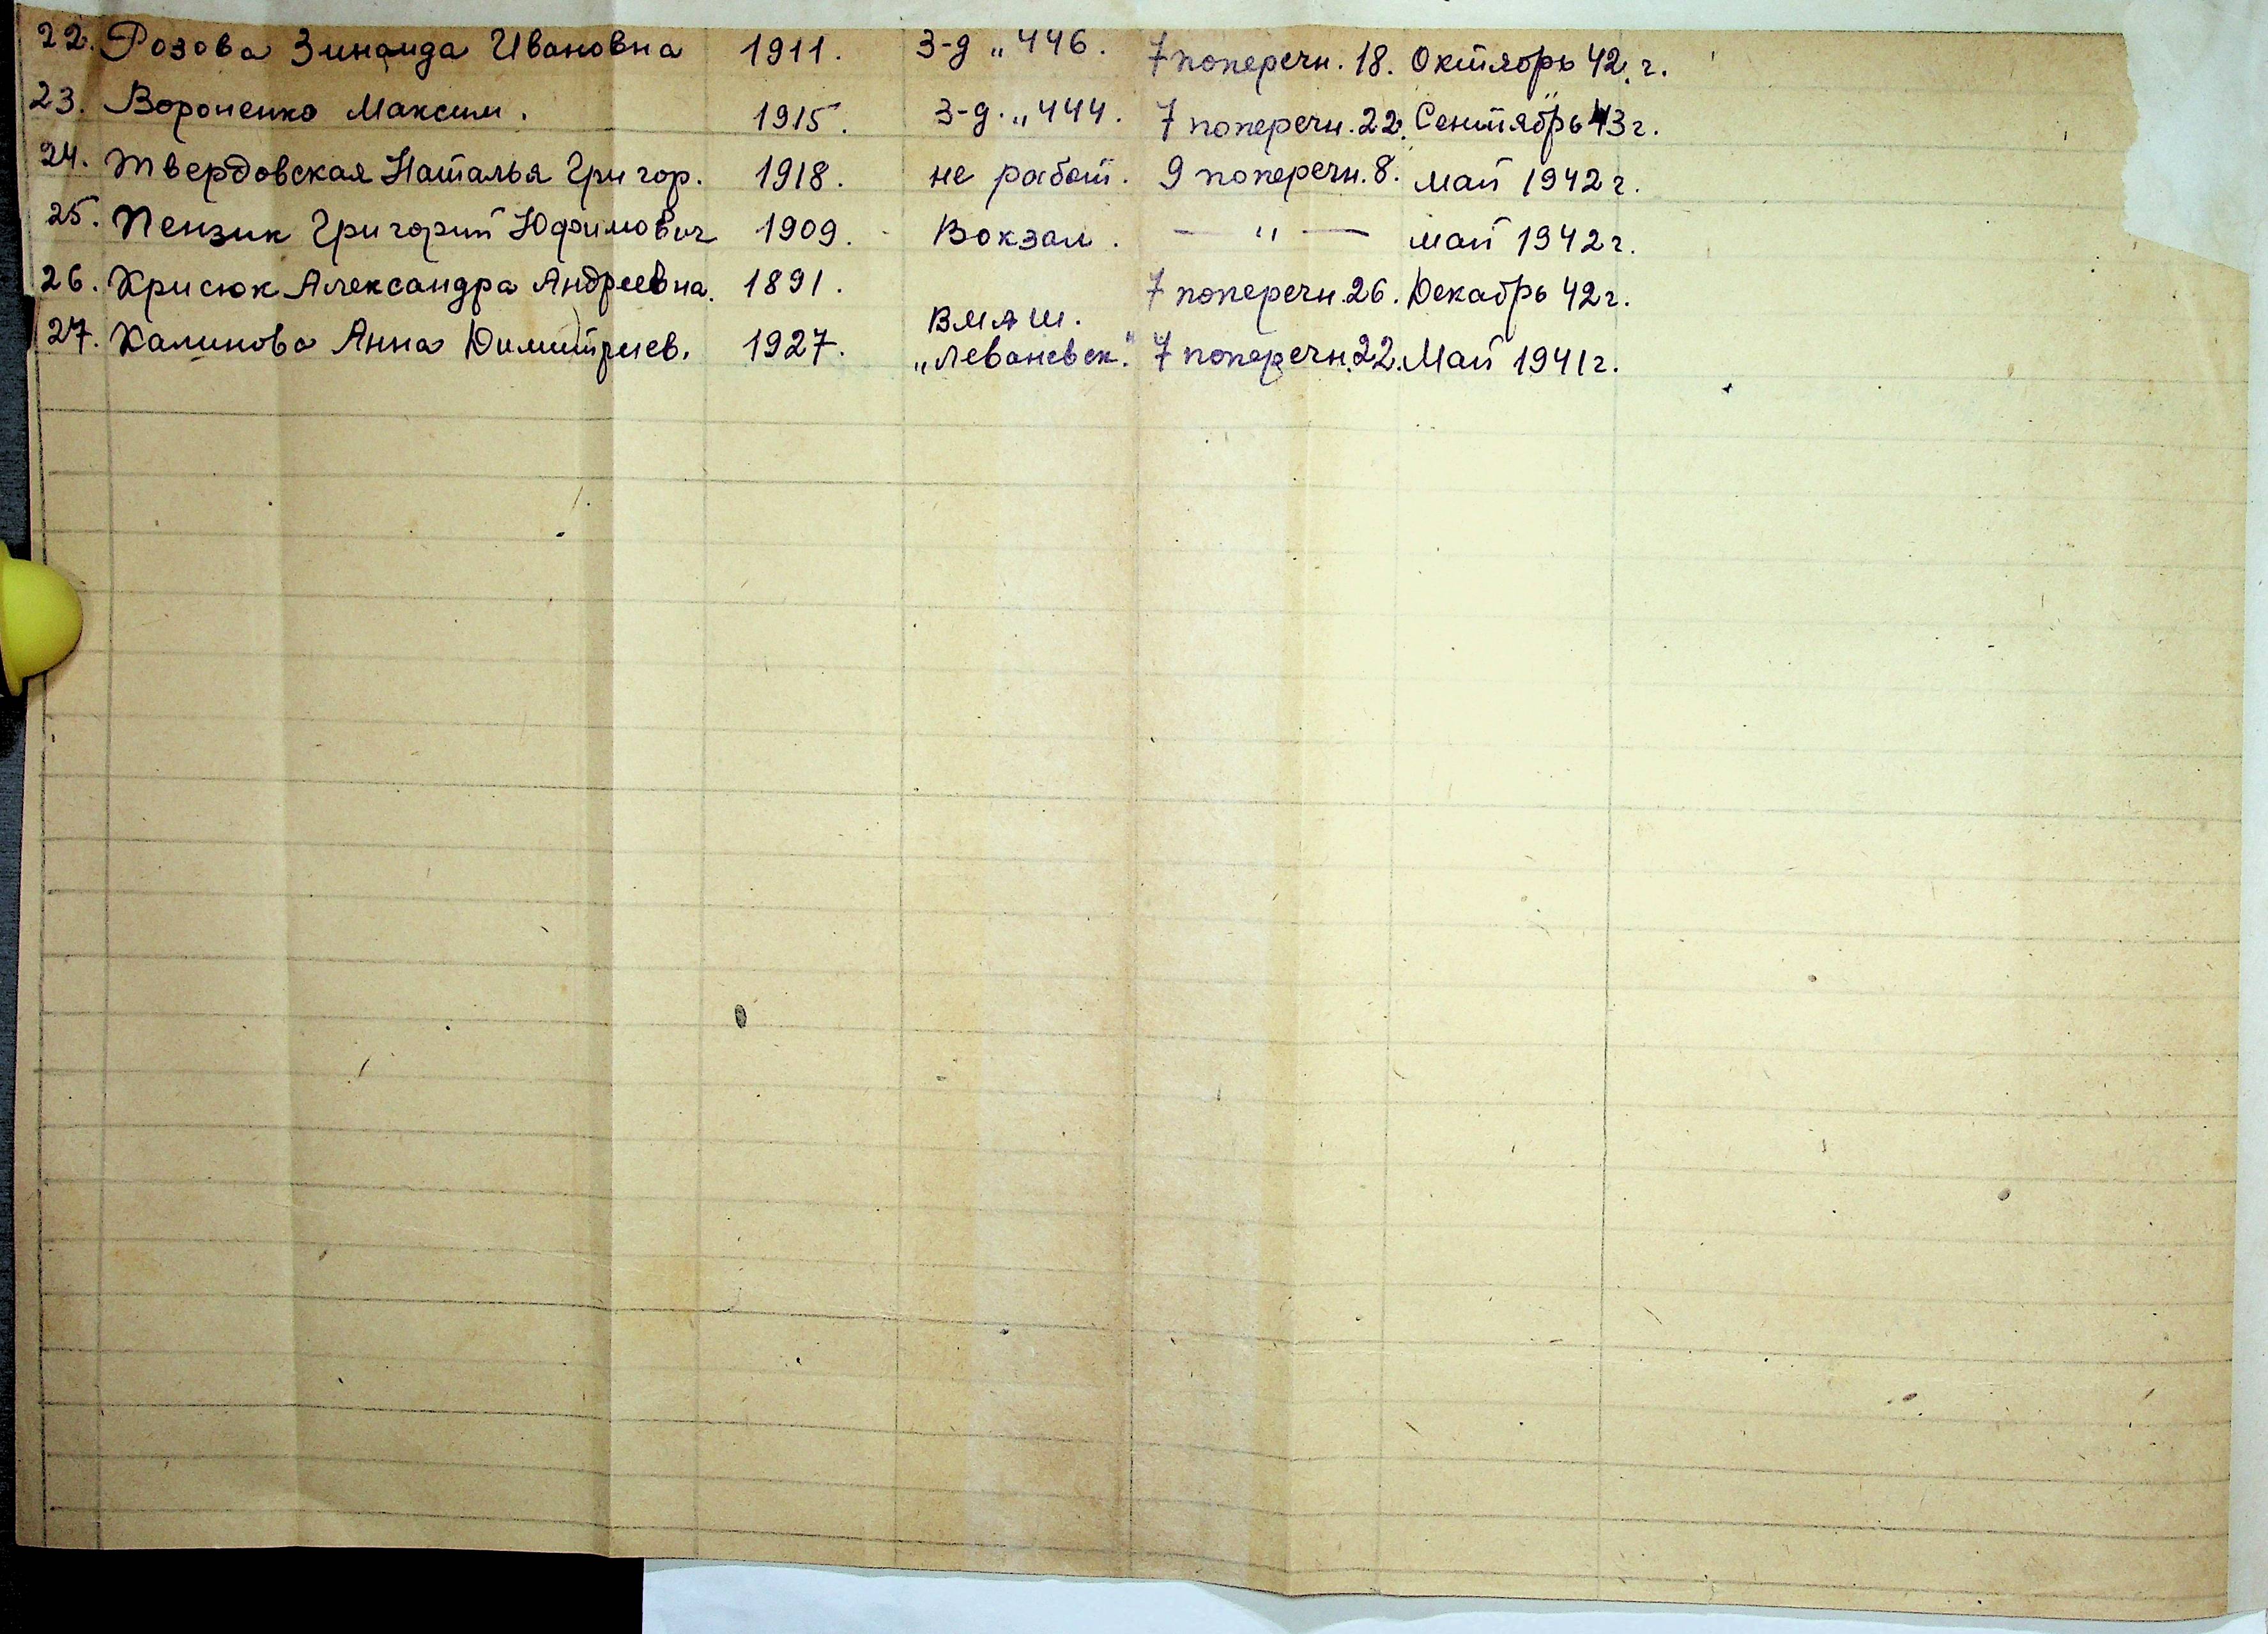 22. Розова Зинаида Ивановна 1911. З-д „446. 7 поперечн. 18. Октябрь 42. г.
23. Вороненко Максим. 1915. З-д. „444. 7 поперечн. 22. Сентябрь 43 г.
24. Твердовская Наталья Григор. 1918. не работ. 9 поперечн. 8. май 1942 г.
25. Пензик Григорий Юфимович 1909. Вокзал. — " — май 1942 г.
26. Крисюк Александра Андреевна. 1891. 7 поперечн. 26. Декабрь 42 г.
27. Калинова Анна Димитриев. 1927. 
„Леваневск." 7 поперечн. 22. Май 1941 г.